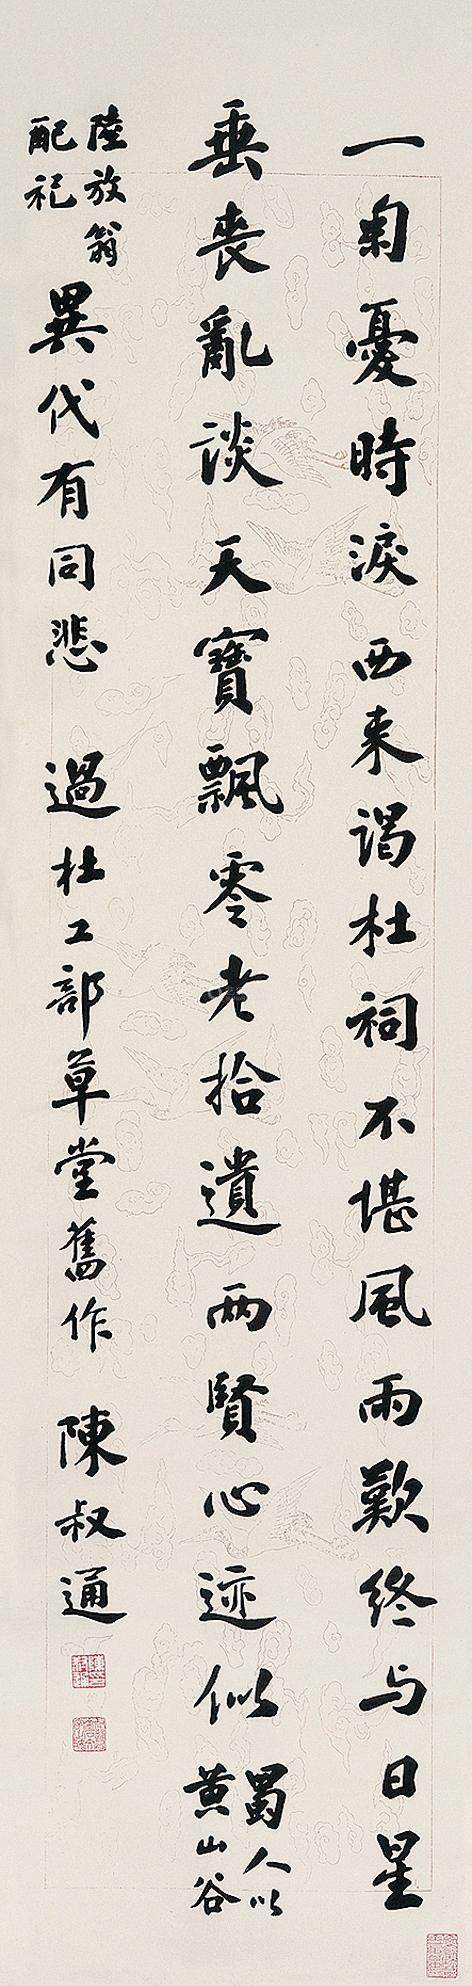 一匊憂時淚西来謁杜祠不堪風雨歎終与日星
垂喪亂談天寶飄零老拾遺两賢心迹似蜀人以
黄山谷
陸放翁
配祀
異代有同悲　過杜工部草堂舊作　陳叔通